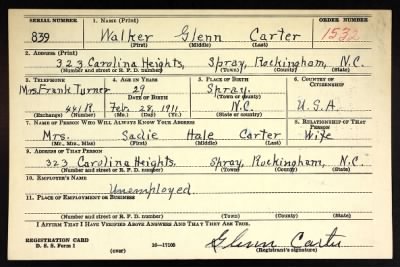 SERIAL NUMBER 1. NAME (Print) ORDER NUMBER
839 Walker Glenn Carter 1532
(First) (Middle) (Last)
2. ADDRESS (Print)
323 Carolina Heights, Spray, Rockingham, N.C.
(Number and street or R. F. D. number) (Town) (County) (State)
3. TELEPHONE 4. AGE IN YEARS 5. PLACE OF BIRTH 6. COUNTRY OF CITIZENSHIP
Mrs. Frank Turner 29 Spray,
DATE OF BIRTH (Town or county)
441R. Feb. 28, 1911 N.C. U.S.A.
(Exchange) (Number) (Mo.) (Day) (Yr.) (State or country)
7. NAME OF PERSON WHO WILL ALWAYS KNOW YOUR ADDRESS 8. RELATIONSHIP OF THAT PERSON
Mrs. Sadie Hale Carter Wife
(Mr., Mrs., Miss) (First) (Middle) (Last)
9. ADDRESS OF THAT PERSON
323 Carolina Heights, Spray, Rockingham, N.C.
(Number and street or R. F. D. number) (Town) (County) (State)
10. EMPLOYER'S NAME
Unemployed
11. PLACE OF EMPLOYMENT OR BUSINESS
(Number and street or R. F. D. number) (Town) (County) (State)
I AFFIRM THAT I HAVE VERIFIED ABOVE ANSWERS AND THAT THEY ARE TRUE.
REGISTRATION CARD
D. S. S. Form 1 (over) 16-17105 Glenn Carter
(Registrant's signature)